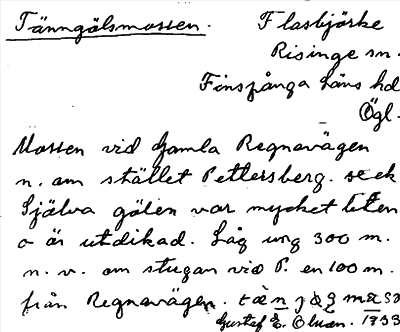 Tänngölsmossen.
Flasbjörke
Risinge sn.
Finspånga läns hd
Ögl.
Mossen vid Gamla Regnavägen
n. om stället Pettersberg. se ek
Själva gölen var mycket liten
o är utdikad. Låg ung 300 m.
n. v. om stugan vid P. en 100 m.
från Regnavägen.
Gustaf E. Olsson. 1933